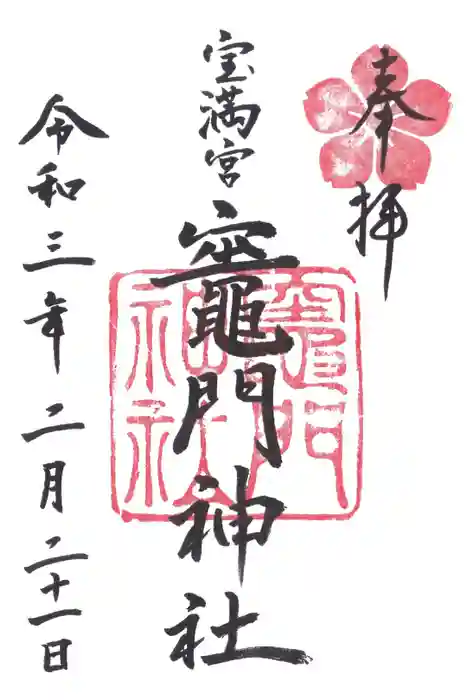 奉拝
宝満宮
竈門神社
令和三年二月二十一日
竈門
神社